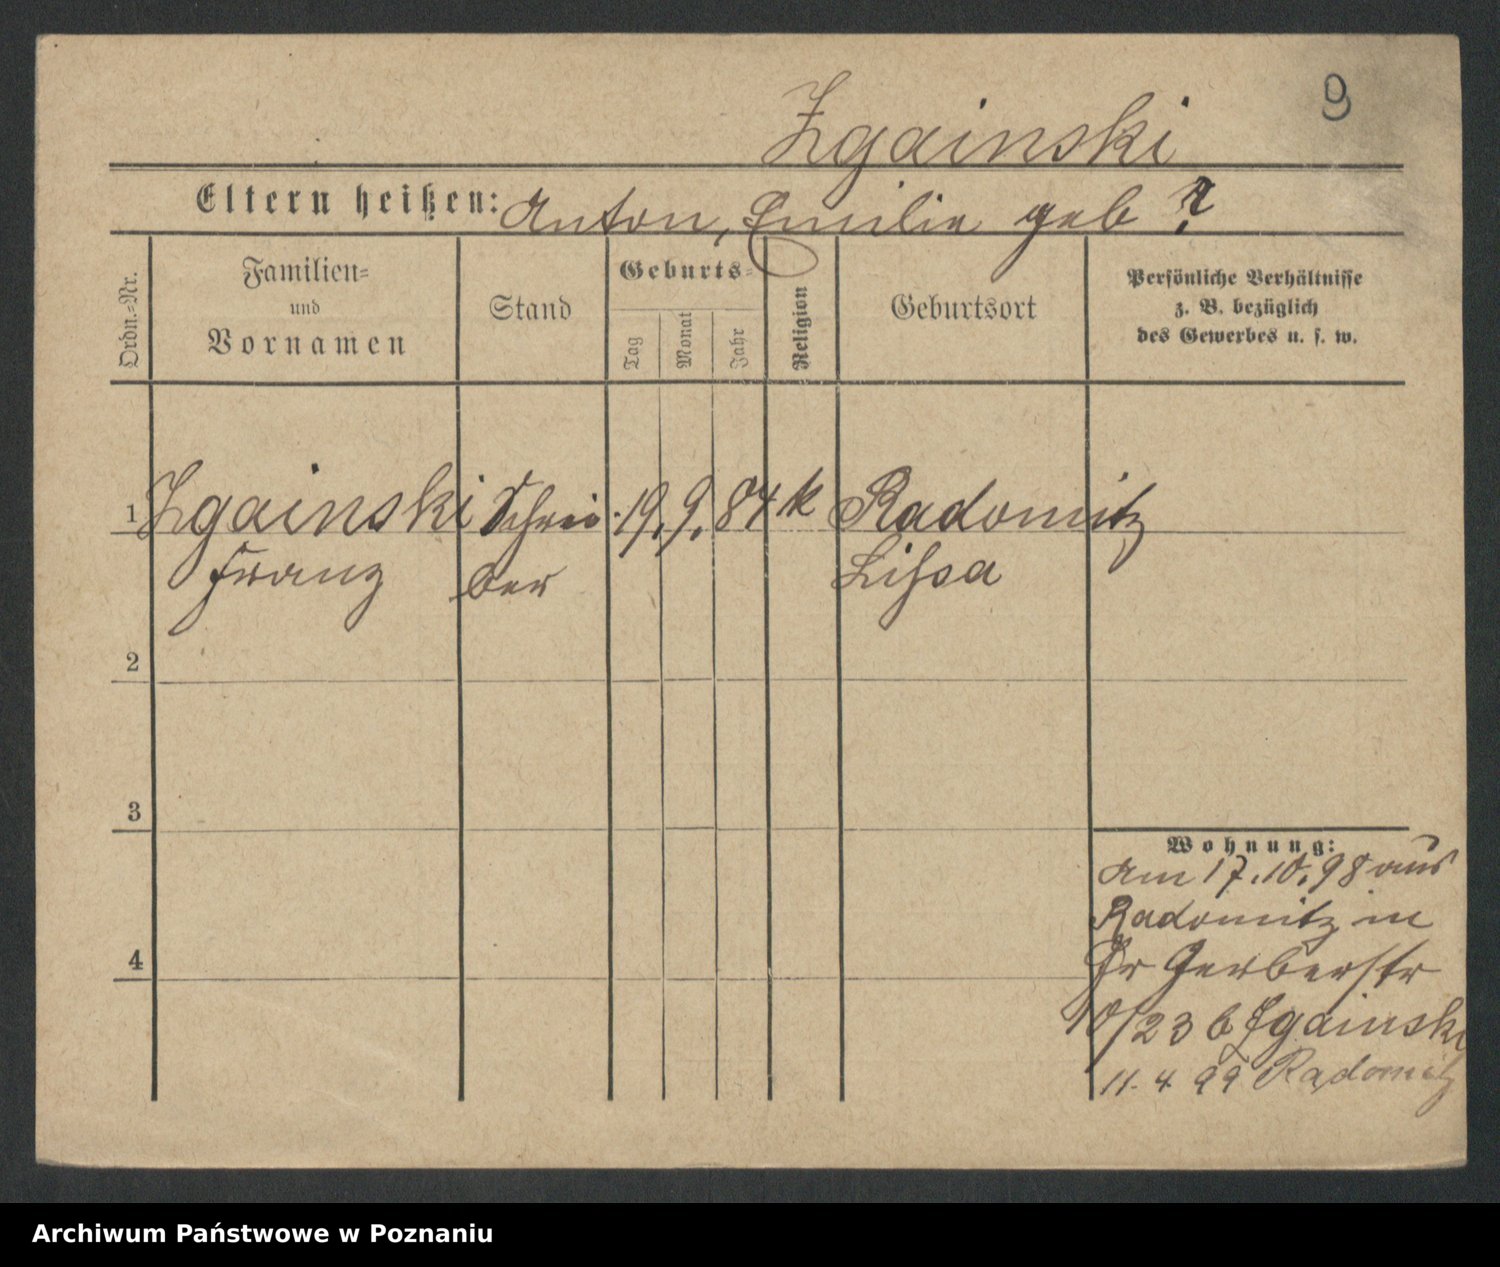 9
Zgainski
Eltern heißen: Anton, Emilie geb ?
Ordn.=Nr.
Familien=
und
Vornamen
Stand
Geburts=
Tag
Monat
Jahr
Religion
Geburtsort
Persönliche Verhältnisse
z. B. bezüglich
des Gewerbes u. s. w.
1 Zgainski Schrei 19. 9. 84 k Radomitz
Franz ber Lissa
2
3
4
Wohnung:
Am 17.10.98 aus
Radomitz in
Gr Gerberstr
10/23 b Zgainski
11. 4 99 Radomitz
Archiwum Państwowe w Poznaniu